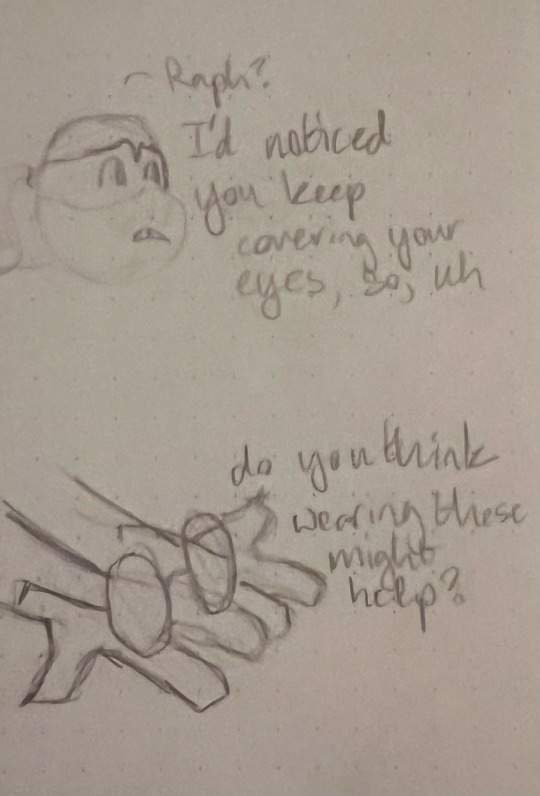 Raph?
I'd noticed
you keep
covering your
eyes, so, uh
do you think
wearing these
might
help?